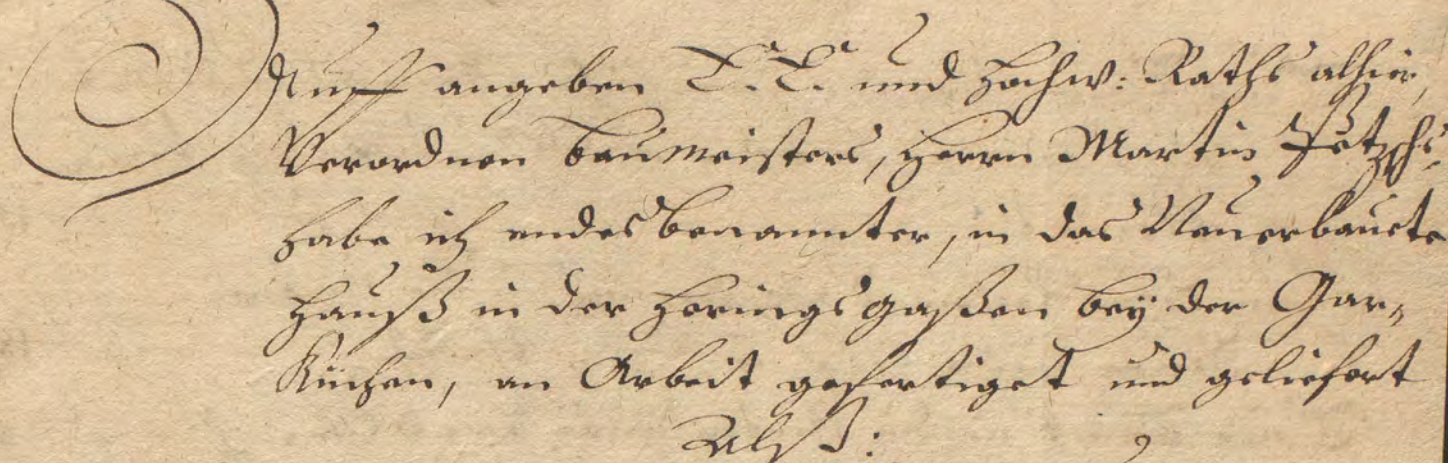 Auff angeben E. E. und Hochw: Raths alhier,
Verordnen Baumeisters, Herrn Martin Pötzschs,
habe ich endesbenannter, in das Neuerbauete
Hauß in der Heringsgaßen bey der Gar„
Küchen, an Arbeit gefertiget und geliefert
Alß: